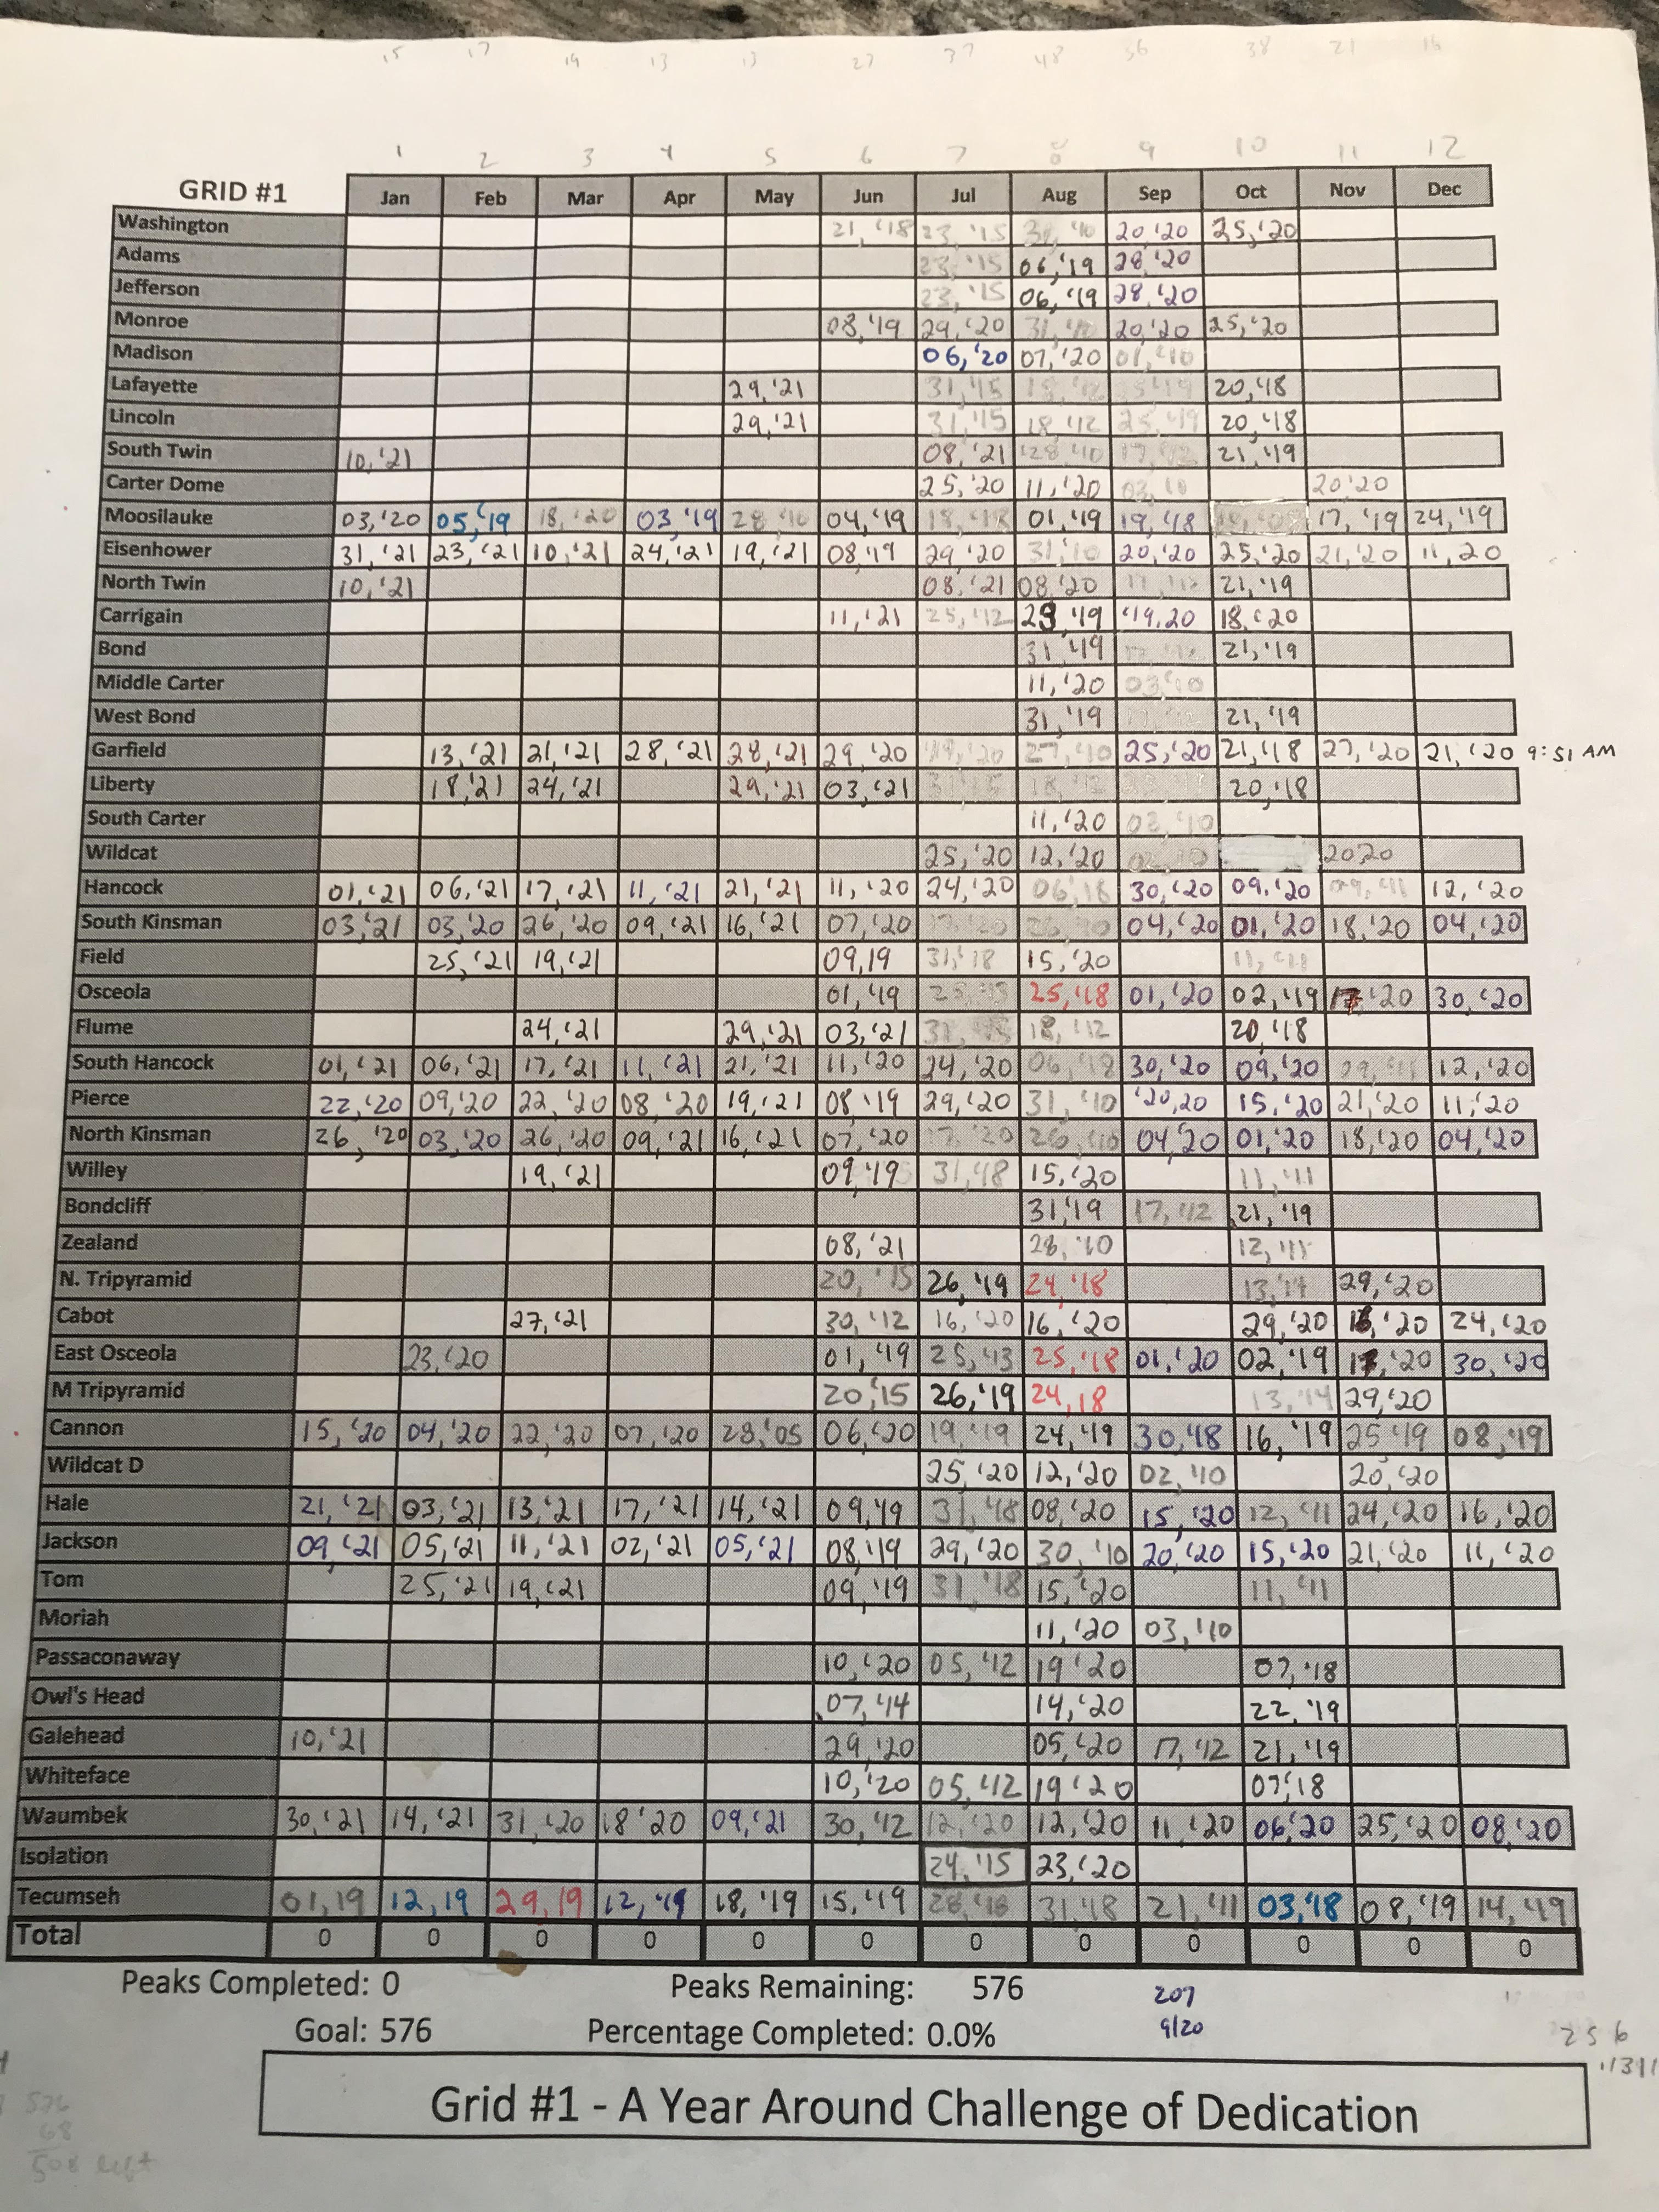 15 17 19 13 13 27 37 48 36 38 21
1 2 3 4 5 6 7 8 9 10 11 12
GRID #1 Jan Feb Mar Apr May Jun Jul Aug Sep Oct Nov Dec
Washington 21, '18 23, '15 31, '10 20, '20 25, '20
Adams 23, '15 06, '19 28, '20
Jefferson 23, '15 06, '19 28, '20
Monroe 08, '19 29, '20 31, '10 20, '20 25, '20
Madison 06, '20 07, '20 01, '10
Lafayette 29, '21 31, '15 18, '12 25, '19 20, '18
Lincoln 29, '21 31, '15 18, '12 25, '19 20, '18
South Twin 10, '21 08, '21 28, '10 17, '12 21, '19
Carter Dome 25, '20 11, '20 03, '10 20 '20
Moosilauke 03, '20 05, '19 18, '20 03, '19 28, '10 04, '19 18, '18 01, '19 19, '18 17, '19 24, '19
Eisenhower 31, '21 23, '21 10, '21 24, '21 19, '21 08 '19 29, '20 31, '10 20, '20 25, '20 21, '20 11, 20
North Twin 10, '21 08, '21 08, '20 17, '12 21, '19
Carrigain 11, '21 25, '12 29, '19 '19, 20 18, '20
Bond 31, '19 17, '12 21, '19
Middle Carter 11, '20 03, '10
West Bond 31, '19 17, '12 21, '19
Garfield 13, '21 21, '21 28, '21 28, '21 29, '20 19, '20 27, '10 25, '20 21, '18 27, '20 21, '20 9:51 AM
Liberty 18, '21 24, '21 29, '21 03, '21 31, '15 18, '12 20, '18
South Carter 11, '20 03, '10
Wildcat 25, '20 12, '20 02, '10 2020
Hancock 01, '21 06, '21 17, '21 11, '21 21, '21 11, '20 24, '20 06, '18 30, '20 09, '20 09, '11 12, '20
South Kinsman 03, '21 03, '20 26, '20 09, '21 16, '21 07, '20 17, '20 26, '10 04, '20 01, '20 18, '20 04, '20
Field 25, '21 19, '21 09, 19 31, '18 15, '20 11, '11
Osceola 01, '19 25, '13 25, '18 01, '20 02, '19 17, '20 30, '20
Flume 24, '21 29, '21 03, '21 31, '15 18, '12 20, '18
South Hancock 01, '21 06, '21 17, '21 11, '21 21, '21 11, '20 24, '20 06, '18 30, '20 09, '20 09, '11 12, '20
Pierce 22, '20 09, '20 22, '20 08, '20 19, '21 08 '19 29, '20 31, '10 '20, 20 15, '20 21, '20 11, '20
North Kinsman 26, '20 03, '20 26, '20 09, '21 16, '21 07, '20 17, '20 26, '10 04, 20 01, '20 18, '20 04, '20
Willey 19, '21 09, '19 31, '18 15, '20 11, '11
Bondcliff 31, '19 17, '12 21, '19
Zealand 08, '21 28, '10 12, '11
N. Tripyramid 20, '15 26, '19 24, '18 13, '14 29, '20
Cabot 27, '21 30, '12 16, '20 16, '20 29, '20 18, '20 24, '20
East Osceola 23, '20 01, '19 25, '13 25, '18 01, '20 02, '19 17, '20 30, '20
M Tripyramid 20, '15 26, '19 24, 18 13, '14 29, '20
Cannon 15, '20 04, '20 22, '20 07, '20 28, '05 06, '20 19, '19 24, '19 30, '18 16, '19 25 '19 08, '19
Wildcat D 25, '20 12, '20 02, '10 20, '20
Hale 21, '21 03, '21 13, '21 17, '21 14, '21 09, '19 31, '18 08, '20 15, '20 12, '11 24, '20 16, '20
Jackson 09, '21 05, '21 11, '21 02, '21 05, '21 08, '19 29, '20 30, '10 20, '20 15, '20 21, '20 11, '20
Tom 25, '21 19, '21 09, '19 31, '18 15, '20 11, '11
Moriah 11, '20 03, '10
Passaconaway 10, '20 05, '12 19 '20 07, '18
Owl's Head 07, '14 14, '20 22, '19
Galehead 10, '21 29, '20 05, '20 17, '12 21, '19
Whiteface 10, '20 05, '12 19 '20 07, '18
Waumbek 30, '21 14, '21 31, '20 18 '20 09, '21 30, '12 12, '20 12, '20 11, '20 06, '20 25, '20 08, '20
Isolation 24, '15 23, '20
Tecumseh 01, 19 12, 19 29, 19 12, '19 18, '19 15, '19 28, '18 31, '18 21, '11 03, '18 08, '19 14, '19
Total 0 0 0 0 0 0 0 0 0 0 0 0
Peaks Completed: 0 Peaks Remaining: 576 207
Goal: 576 Percentage Completed: 0.0% 9/20
256
Grid #1 - A Year Around Challenge of Dedication
576
68
508 left